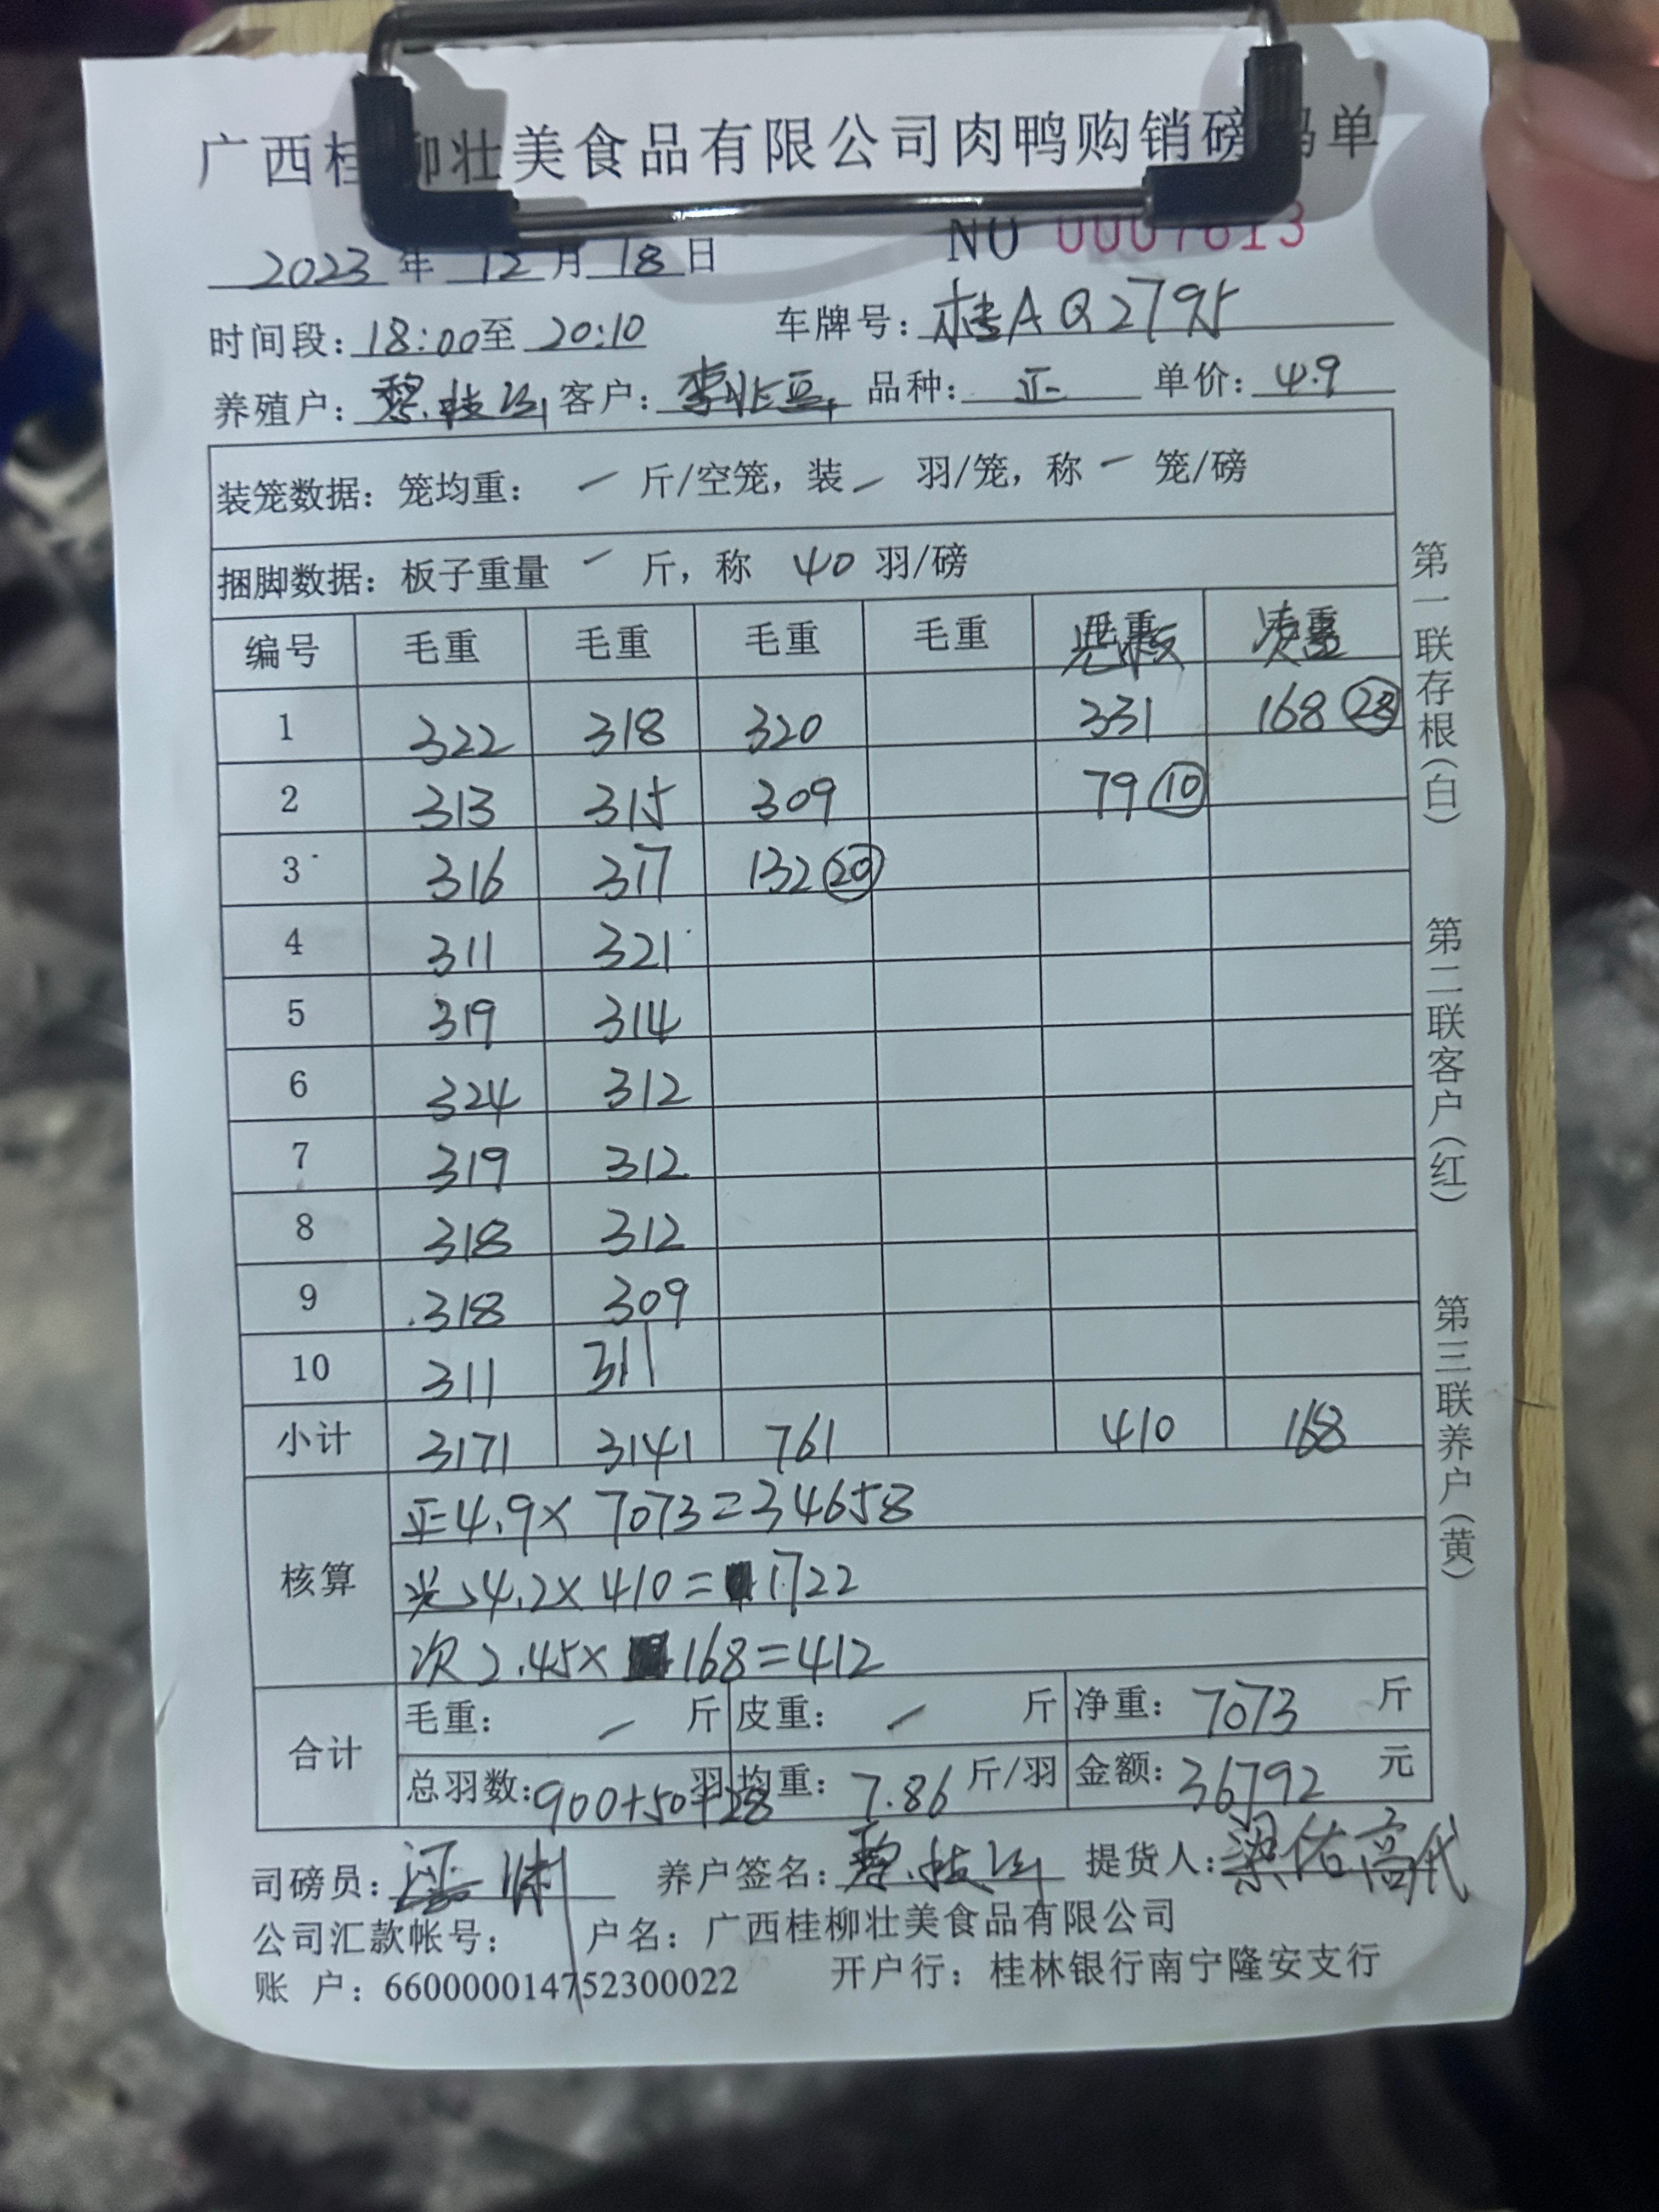 广西桂柳壮美食品有限公司肉鸭购销磅码单
NO 0007613
2023年 12月 18日
时间段：18:00至 20:10 车牌号：桂AQ2795
养殖户：黎 客户：李 品种：正 单价：4.9
装笼数据：笼均重： — 斤/空笼，装 — 羽/笼，称 — 笼/磅
捆脚数据：板子重量 — 斤，称 40 羽/磅
编号 毛重 毛重 毛重 毛重
1 322 318 320 331 168 28
2 313 315 309 79 10
3 316 317 132 20
4 311 321
5 319 314
6 324 312
7 319 312
8 318 312
9 318 309
10 311 311
小计 3171 3141 761 410 168
核算
正4.9×7073=34658
光4.2×410=1722
次2.45×168=412
合计
毛重： — 斤 皮重： — 斤 净重：7073 斤
总羽数：900+50+28 羽 均重：7.86 斤/羽 金额：36792 元
司磅员： 养户签名：黎 提货人：梁佑高代
公司汇款帐号： 户名：广西桂柳壮美食品有限公司
账 户：660000014752300022 开户行：桂林银行南宁隆安支行
第一联存根（白）
第二联客户（红）
第三联养户（黄）